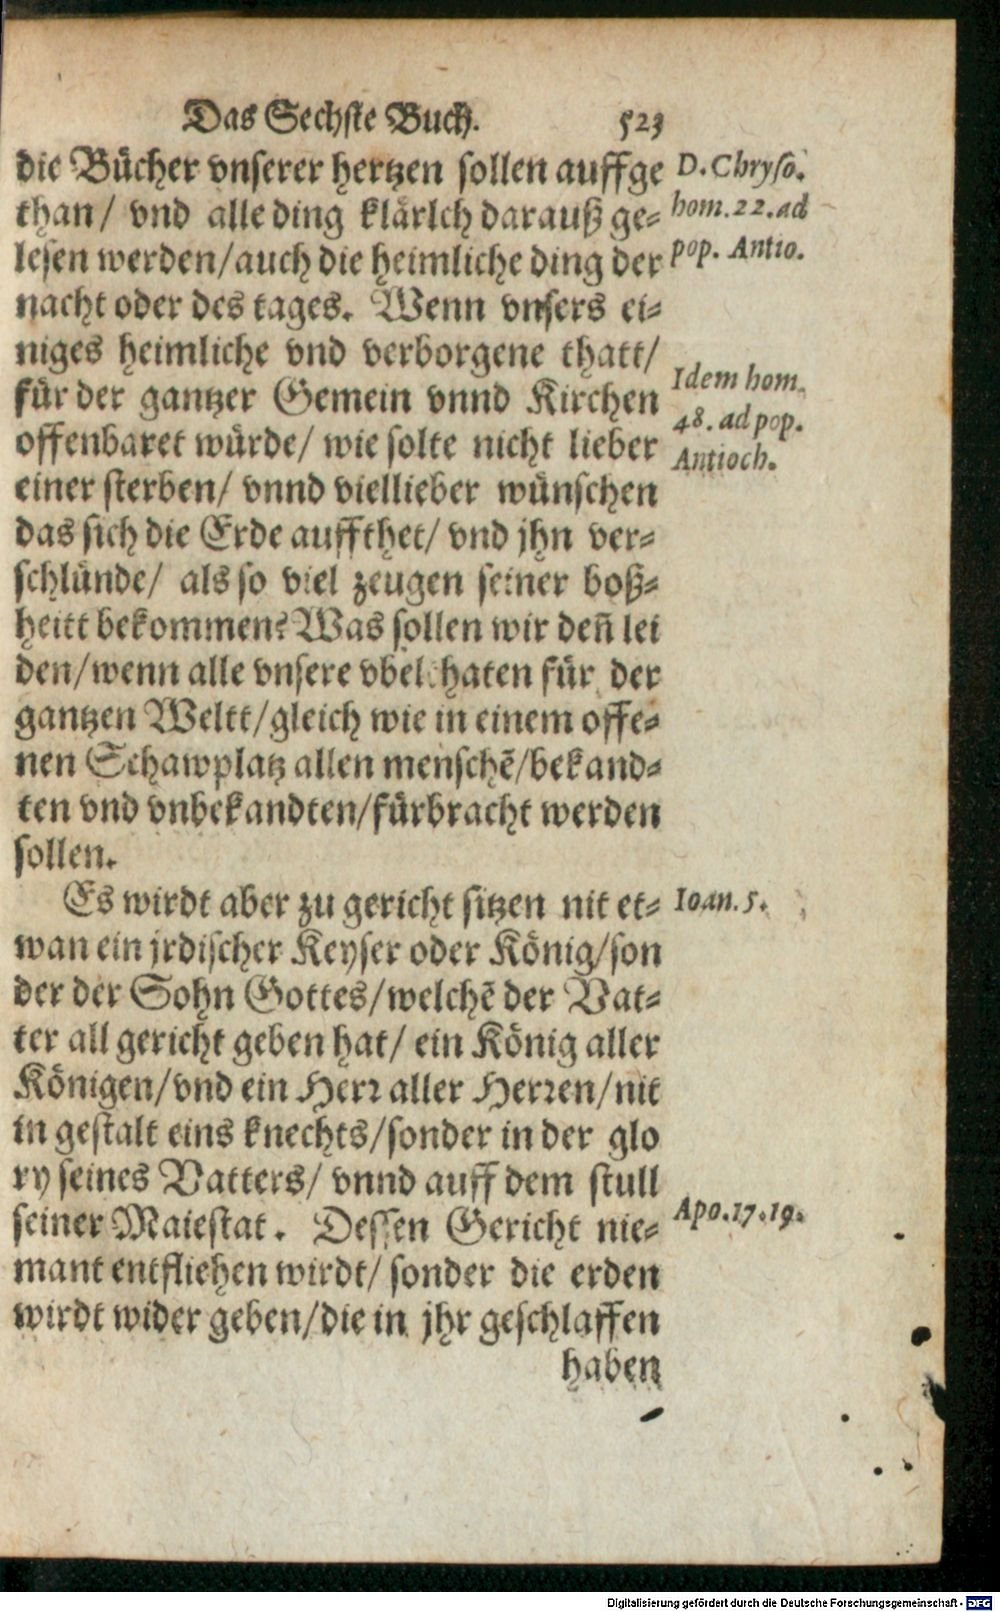 Das Sechste Buch. 523
die Bücher vnserer hertzen sollen auffge
than/ vnd alle ding klärlch darauß ge-
lesen werden/auch die heimliche ding der
nacht oder des tages. Wenn vnsers ei-
niges heimliche vnd verborgene thatt/
für der gantzer Gemein vnnd Kirchen
offenbaret würde/ wie solte nicht lieber
einer sterben/ vnnd viellieber wünschen
das sich die Erde auffthet/ vnd jhn ver-
schlünde/ als so viel zeugen seiner boß-
heitt bekommen? Was sollen wir deñ lei
den/wenn alle vnsere vbelthaten für der
gantzen Weltt/gleich wie in einem offe-
nen Schawplatz allen menschẽ/bekand-
ten vnd vnbekandten/fürbracht werden
sollen.
Es wirdt aber zu gericht sitzen nit et-
wan ein jrdischer Keyser oder König/son
der der Sohn Gottes/welchẽ der Vat-
ter all gericht geben hat/ ein König aller
Königen/vnd ein Herr aller Herren/nit
in gestalt eins knechts/sonder in der glo
ry seines Vatters/ vnnd auff dem stull
seiner Maiestat. Dessen Gericht nie-
mant entfliehen wirdt/ sonder die erden
wirdt wider geben/die in jhr geschlaffen
haben
D. Chryso.
hom. 22. ad
pop. Antio.
Idem hom.
48. ad pop.
Antioch.
Ioan. 5.
Apo. 17. 19.
Digitalisierung gefördert durch die Deutsche Forschungsgemeinschaft - DFG